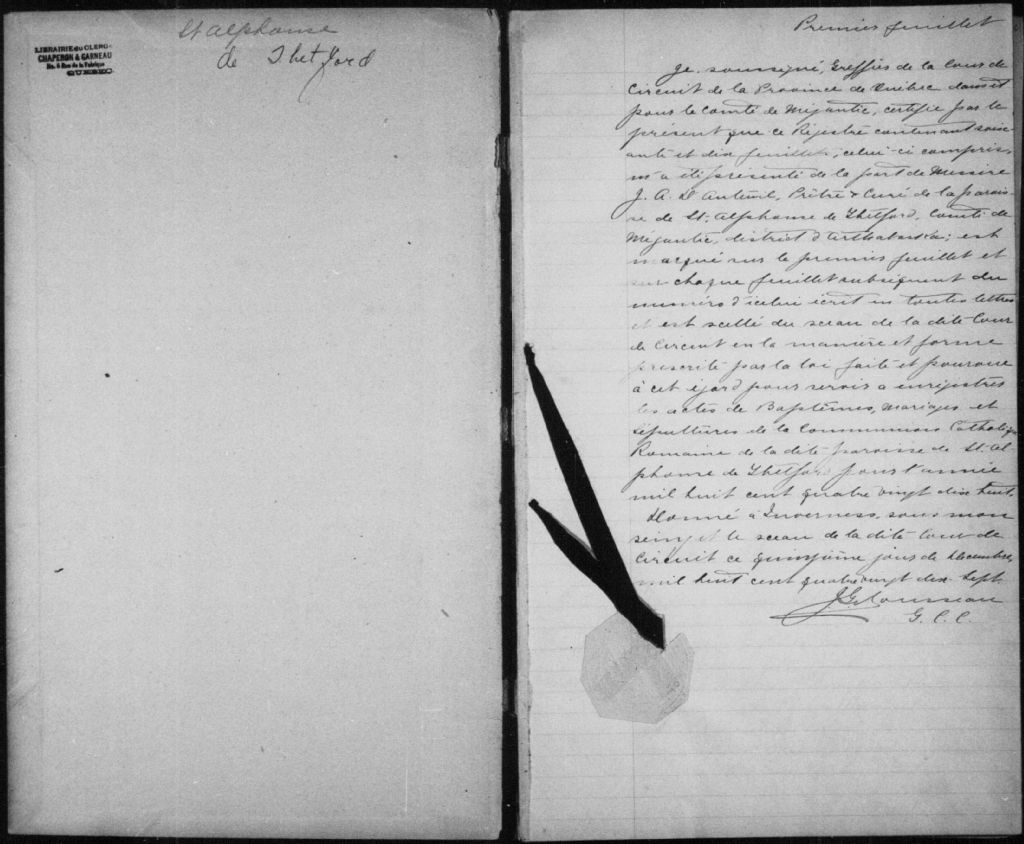 LIBRAIRIE du CLERGÉ
CHAPERON & GARNEAU
No. 6 Rue de la Fabrique
QUEBEC.
St Alphonse
de Thetford
Premier feuillet
Je, soussigné, Greffier de la Cour de
Circuit de la Province de Québec dans et
pour le Comté de Mégantic, certifie par le
présent que ce Régistre contenant soix-
ante et dix feuillets, celui-ci compris,
m'a été présenté de la part de Messire
J. A. D'Auteuil, Prêtre & Curé de la parois-
se de St. Alphonse de Thetford, Comté de
Mégantic, district d'Arthabaska; est
marqué sur le premier feuillet et
sur chaque feuillet subséquent du
numéro d'icelui écrit en toutes lettres
et est scellé du sceau de la dite Cour
de Circuit en la manière et forme
prescrite par la loi faite et pourvue
à cet égard pour servir a enrégistrer
les actes de Baptêmes, Mariages et
Sépultures de la Communion Catholique
Romaine de la dite paroisse de St. Al-
phonse de Thetford pour l'année
mil huit cent quatre vingt dix huit.
Donné à Inverness, sous mon
seing et le sceau de la dite Cour de
Circuit ce quinzième jour de Décembre,
mil huit cent quatre vingt dix sept
Rousseau
G. C. C.